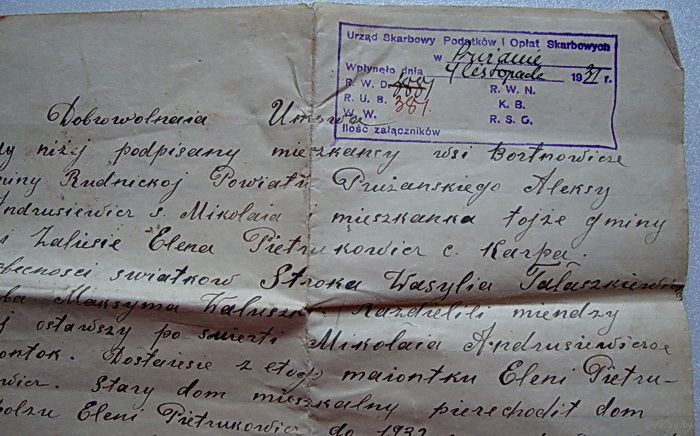 Urząd Skarbowy Podatków i Opłat Skarbowych
w Prużanie
Wpłynęło dnia 4 listopada 1931 r.
R. W. D. R. W. N.
R. U. B. 381. K. B.
W. W. R. S. G.
Ilość załączników
Dobrowolnaia Umowa
niży podpisany mieszkancy wsi Bortnowicze
Rudnickoj Powiatu Prużanskiego Aleksy
Andrusiewicz s. Mikołaia i mieszkanka tojże gminy
Zalusie Elena Pietrukowicz c. Karpa.
obecnosci swiatkow Stroka Wasylia Tałaszkiewi
Maksyma Wałuszko. Razdzielili miendzy
ostawszy po smierti Mikołaia Andrusiewicza
maiontok. Dostaiesie z etogo maiontku Eleni Pietru-
kowicz. Stary dom mieszkalny pierechodit dom
Eleni Pietrukowicz do 1932